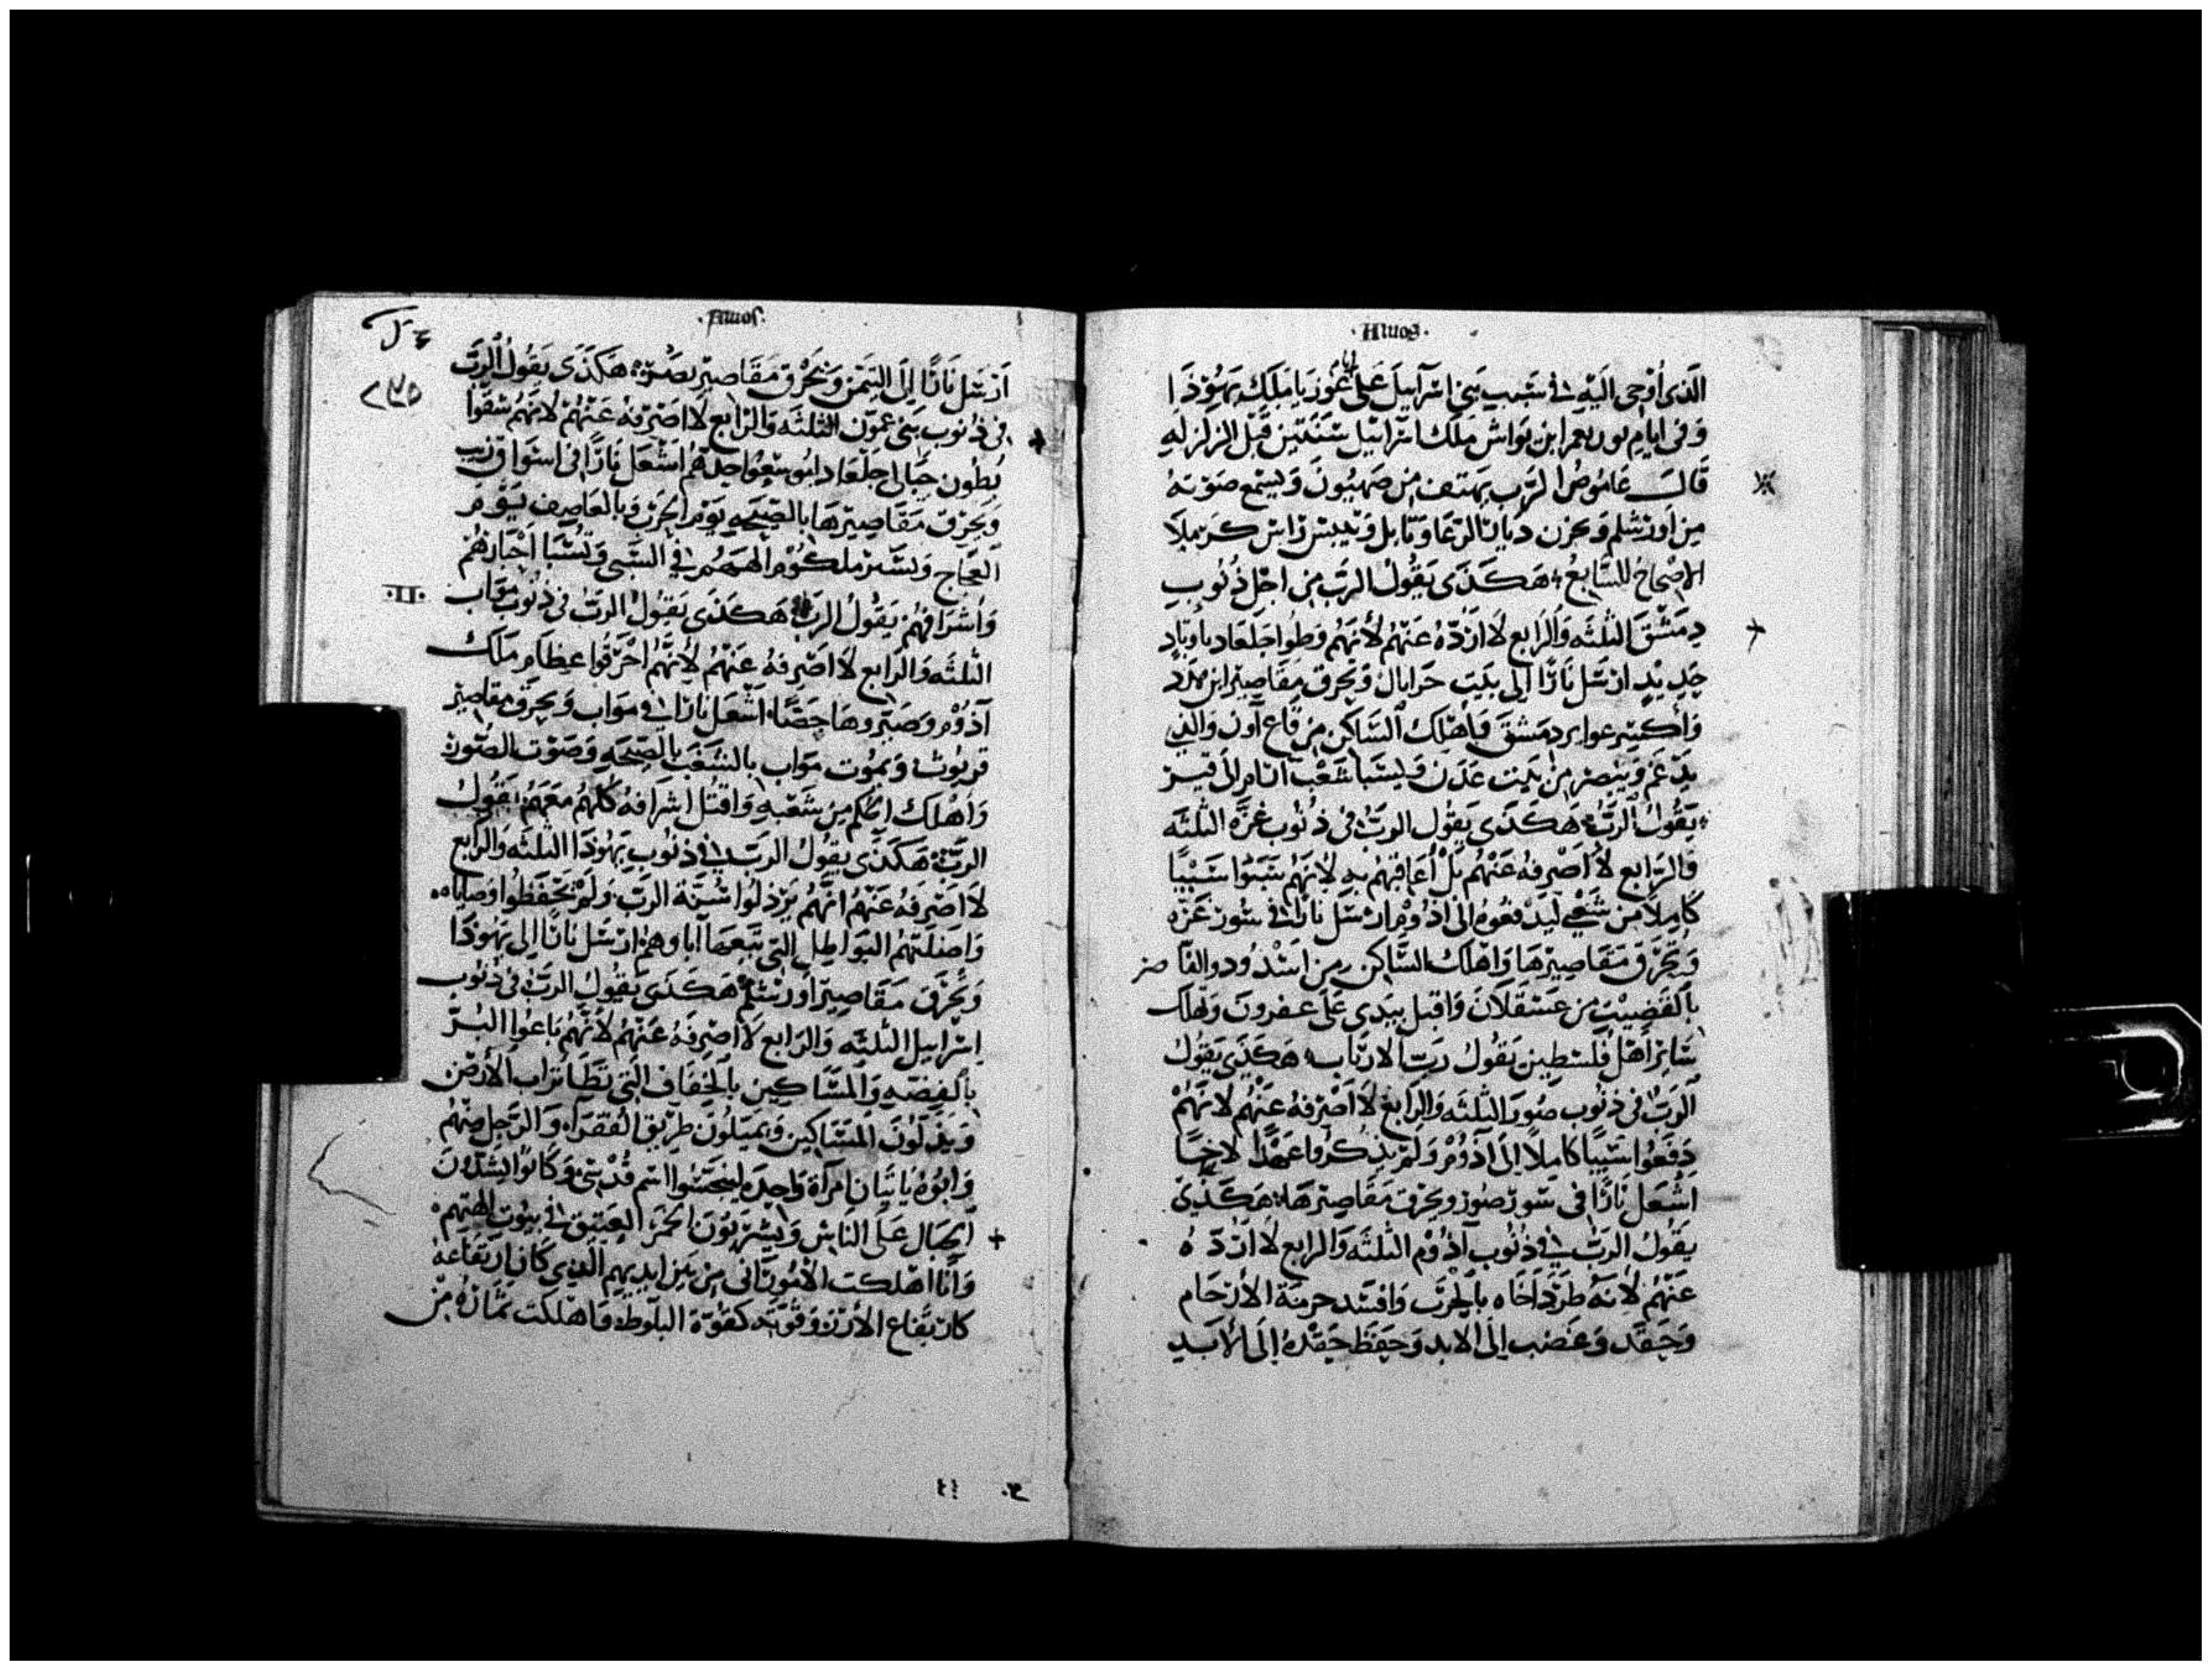 Amos.
الَّذى أُوحى الَيْهِ فى سَبب بَنِى اسْرَآييلَ عَلى عُوزيَا مَلِك يَهُوذَا
وَفى ايام يوربعم ابن يواش مَلِك اسْرَاييل سَنَتَين قَبْل الزلزله
قَالَ عَامُوصُ الرَّب يهتف من صَهيُونَ وَيسْمَع صَوْته
مِن اورَشلم وَحزن ديارات الرعَا وَييبس رَاس كرملا
الاصْحاحُ السَّابعُ هَكَذَى يَقُولُ الربّ مِن اجْل ذُنُوب
دِمَشْقَ الثلثَه وَالرَابع لَا ارُدّهُ عَنهُم لأنَهُم وَطوا جَلعَاد باوتاد
حَديد ارْسَل نَارًا الى بَيت حَزايال وَتحرق مَقَاصِير ابن هدد
وَاكسر عوابر دمشقَ وَاهْلك السَّاكن من قاع اون وَالذى
يَقُولُ الرَّبُ هَكَذَى يَقُول الربّ فى ذنُوب غزَّه الثلثَه
وَالرَابع لَا اصْرفهُ عَنْهُم بَلْ أُعَاقبهُم به لانَهُم سَبَوْا سَبْيًا
كَامِلًا من شَعْبى ليَدْفعُوهُ الى اذُوْم ارسَل نَارًا فى سُور غزّه
وَتَحرق مَقَاصِيرهَا وَاهْلك السَّاكن من اسْدُود والقا صر
بالقَضِيب من عَسْقلَانَ وَاقبل بيَدى عَلى عفرون وَتهلك
سَايرَ اهْل فلسْطين يَقُولُ رَبّ الاربَاب هَكَذَى يَقُولُ
الربّ فى ذنُوب صُور الثلثَه وَالرابع لَا اصْرفهُ عَنْهُم لانهُمْ
دَفَعُوا سَبيًا كامِلًا الى آذُوْم وَلَم يَذكرُوا عَهْدًا لاخيًا
اشْعَل نَارًا فى سُور صُور وتحرق مَقَاصِيرهَا هَكَذَى
يَقُولُ الربّ فى ذنُوب آذُوْم الثلثَه وَالرابع لَا ارُدّ هُ
عَنْهُم لانهُ طرَدَ اخَاه بالحَرْب وَافسَد حرمَة الارْحَام
وَحَقَد وَغضب الى الابد وَحفظَ حقدهُ الى الابَد
Amos.
٢٤٥
ارْسَل نَارًا الى التَيمَن وَتَحْرق مَقَاصِير بصُرَه هَكَذَى يَقُولُ الربّ
فى ذُنوب بَنى عمّون الثلثَه وَالرَّابع لَا اصْرفهُ عَنْهُمْ لانهُم شَقوا
بُطون حبَالى جَلْعَاد اشْعَل نَارًا فى اسْوَار
وَيَحرق مَقَاصِيرهَا بالصيحَه يَوْم الحَرْب وَبالعَاصِف يَوْم
العجَاج وَيسَير ملكُوم الههُم فى السَّبى وَتُسْبا احْبَارهُمْ
وَاشْرَافهُمْ يَقُولُ الربّ هَكَذَى يَقُولُ الربّ فى ذنُوب موَاب
.II.
الثلثَه وَالرَابع لَا اصْرفهُ عَنْهُم لانَّهُمْ احْرَقُوا عِظام مَلك
آذُوْم وَصَيَّروهَا جَصًّا اشْعَل نَارًا فى موَاب وَيحرق مقَاصِير
قريوث وَيمُوت موَاب بالشَغَب بالصيحَه وَصَوْت الصّور
وَاهْلك الحَاكم من شَعْبه وَاقتُل اشرَافهُ كلهُم مَعَهُم يَقُولُ
الربّ هَكَذَى يَقُولُ الربّ فى ذنُوب يَهُوذَا الثلثَه وَالرابع
لَا اصْرفهُ عَنْهُم انَّهُم يَرذلُوا سُنَّة الربّ وَلَمْ يَحْفَظُوا وصَاياه
وَاضلَّتهُم البَواطِل التى تبعهَا آباوهم ارْسَل نَارًا الى يَهُوذَا
وَتَحْرق مَقَاصِير اورشلم هَكَذَى يَقُولُ الربّ فى ذنُوب
اسْرَاييل الثلثَه وَالرابع لَا اصْرفهُ عَنْهُم لانَّهُم بَاعُوا البَرّ
بالفِضّه وَالمسَاكين بالخِفَاف التى تطَا ترَاب الارْض
وَيذلّونَ المسَاكين وَيميلُونَ طريق الفُقرَآ وَالرَّجل منهُم
وَابُوهُ يَاتيَان امرآة وَاحدَه لينَجّسُوا اسْم قُدسى وَكانوا يَشدّونَ
الحبَال عَلى الناس وَيشْرَبُونَ الخمْرَ العَتيق فى بيُوت الهتهم
وَانَا اهْلكت الامُورَانى من بَين ايديهم الذى كَان ارتفَاعه
كارتفَاع الارْز وَقوّته كقوّة البلّوطه وَاهْلكت ثمَارهُ من